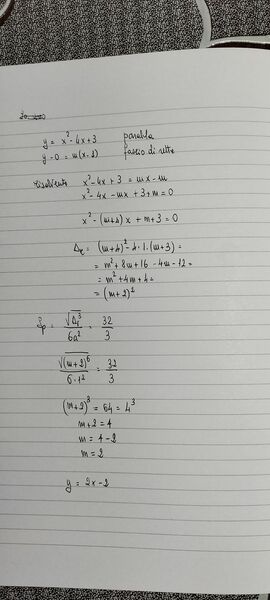 y = x² - 4x + 3 parabola
y - 0 = m(x - 1) fascio di rette
risolvente x² - 4x + 3 = mx - m
x² - 4x - mx + 3 + m = 0
x² - (m+4)x + m + 3 = 0
Δ = (m+4)² - 4·1·(m+3) =
= m² + 8m + 16 - 4m - 12 =
= m² + 4m + 4 =
= (m+2)²
Sp = √Δ³ / 6a² = 32/3
√(m+2)⁶ / 6·1² = 32/3
(m+2)³ = 64 = 4³
m + 2 = 4
m = 4 - 2
m = 2
y = 2x - 2